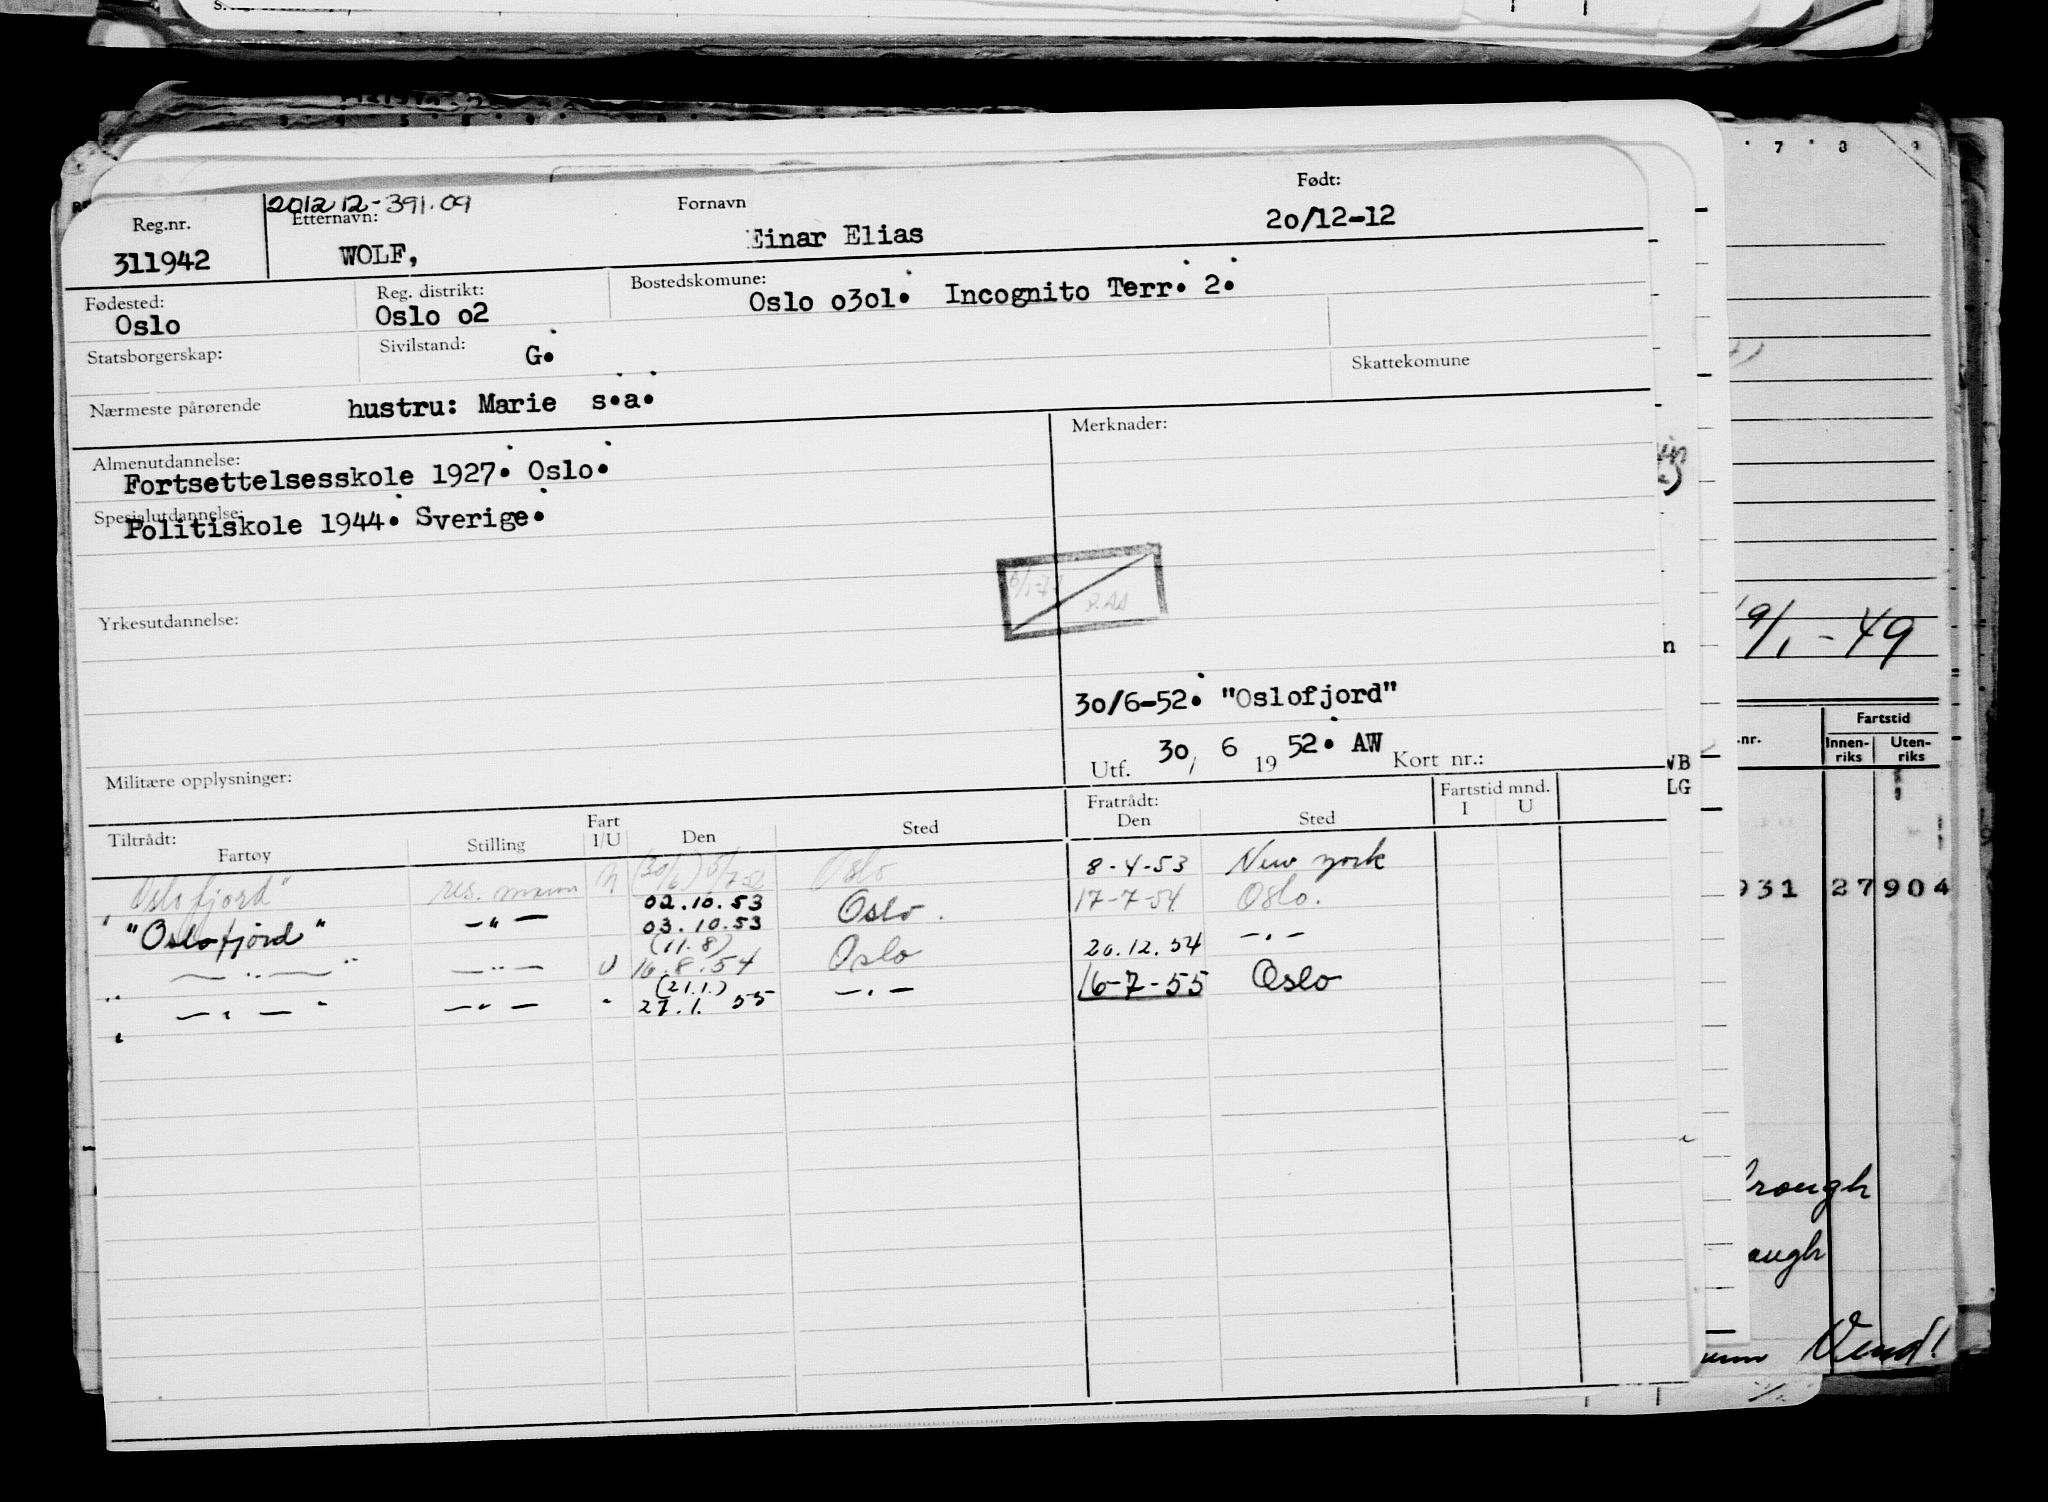 7 8 9
201212-391.09
Reg.nr. Etternavn: Fornavn Født:
311942 WOLF, Einar Elias 20/12-12
Fødested: Reg. distrikt: Bostedskomune:
Oslo Oslo o2 Oslo o3o1. Incognito Terr. 2.
Statsborgerskap: Sivilstand: G. Skattekomune
Nærmeste pårørende hustru: Marie s.a.
Almenutdannelse: Merknader:
Fortsettelsesskole 1927. Oslo.
Spesialutdannelse:
Politiskole 1944. Sverige.
Yrkesutdannelse:
9/1-49
30/6-52. "Oslofjord"
Utf. 30, 6 1952. AW Kort nr.:
Militære opplysninger:
Fartstid
.nr. Innen-riks Uten-riks
VB
LG
Tiltrådt: Fratrådt: Fartstid mnd.
Fartøy Stilling Fart I/U Den Sted Den Sted I U
"Oslofjord" res. mann (30/6) 5/7-52 Oslo 8-4-53 New york
"Oslofjord" -"- 02.10.53 Oslo. 17-7-54 Oslo.
03.10.53
-"- -"- U (11.8) 16.8.54 Oslo 20.12.54 -"-
-"- -"- " (21.1.) 27.1. 55 -"- 16-7-55 Oslo
931 27904
rough
augh
Vend!